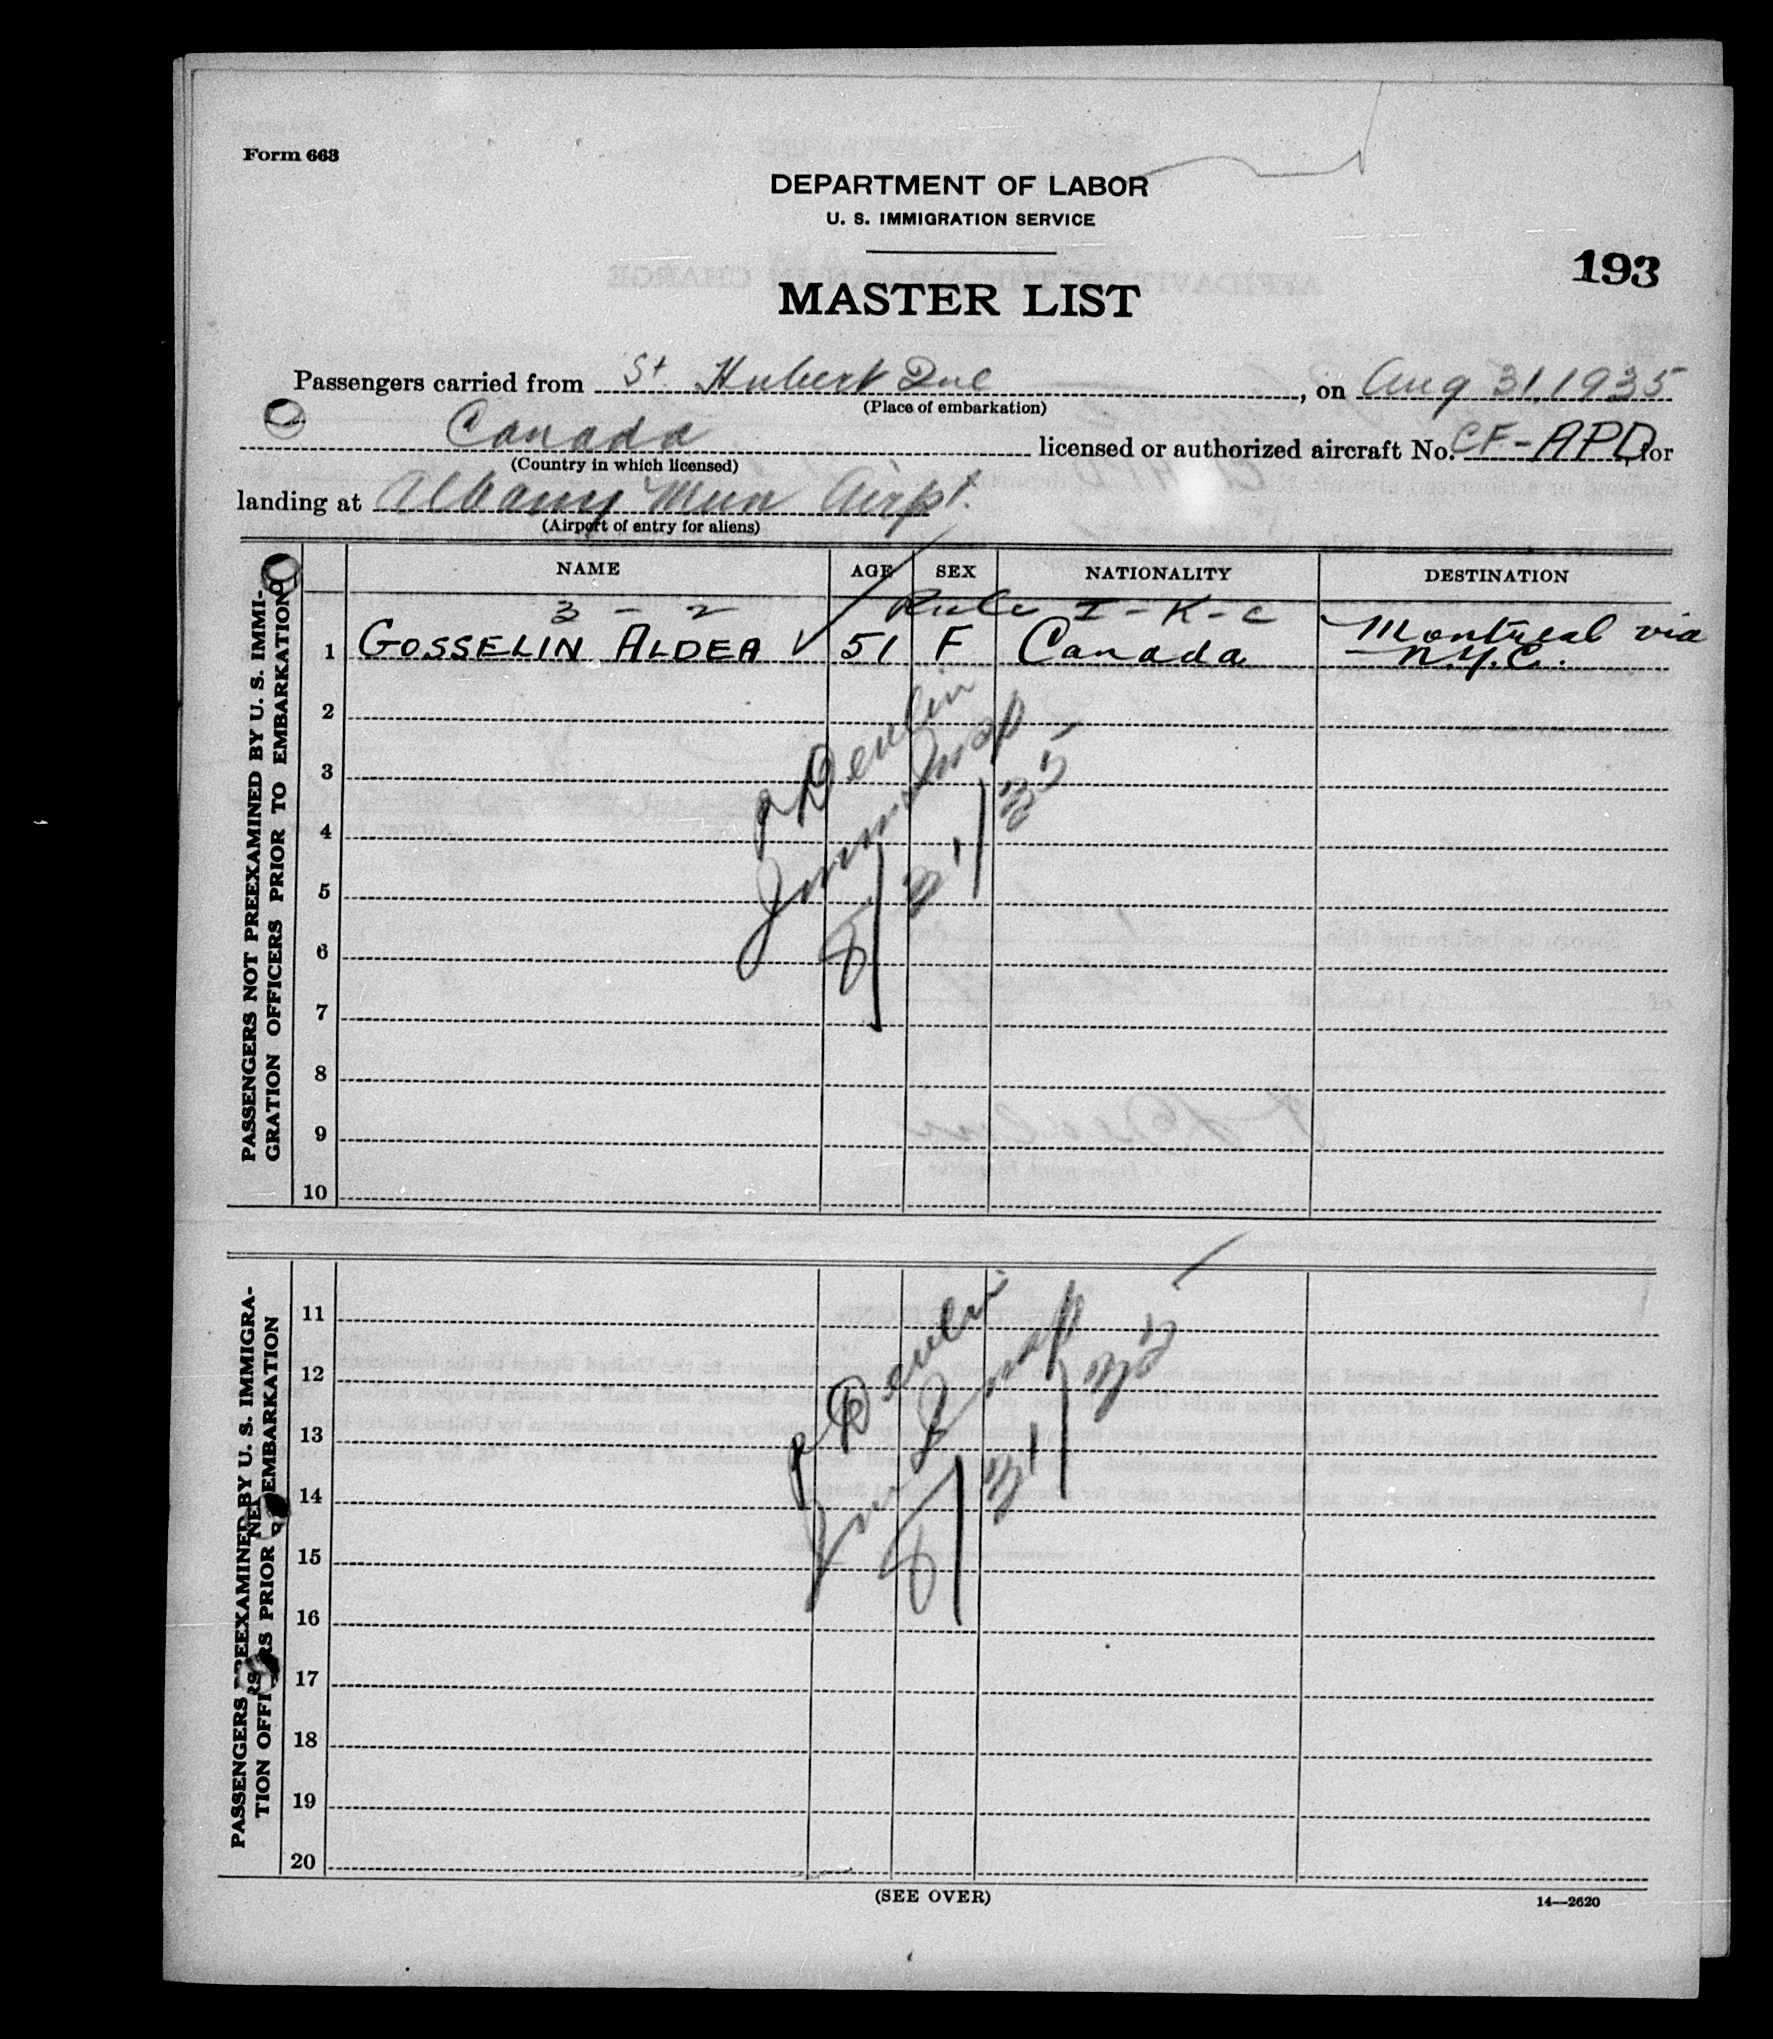 Form 663
DEPARTMENT OF LABOR
U. S. IMMIGRATION SERVICE
193
MASTER LIST
Passengers carried from St. Hubert Que, on Aug 31, 1935
(Place of embarkation)
Canada licensed or authorized aircraft No. CF-APD, for
(Country in which licensed)
landing at Albany Mun Airpt.
(Airport of entry for aliens)
PASSENGERS NOT PREEXAMINED BY U. S. IMMI-
GRATION OFFICERS PRIOR TO EMBARKATION
NAME AGE SEX NATIONALITY DESTINATION
3 - 2 Rule I - K - c
1 GOSSELIN ALDEA ✓ 51 F Canada Montreal via
N.Y.C.
2
3
4
5
6
7
8
9
10
Devlin
Immig Insp
8/31/35
PASSENGERS PREEXAMINED BY U. S. IMMIGRA-
TION OFFICERS PRIOR EMBARKATION
11
12
13
14
15
16
17
18
19
20
Devlin
Insp
8/31/35
(SEE OVER)
14—2620